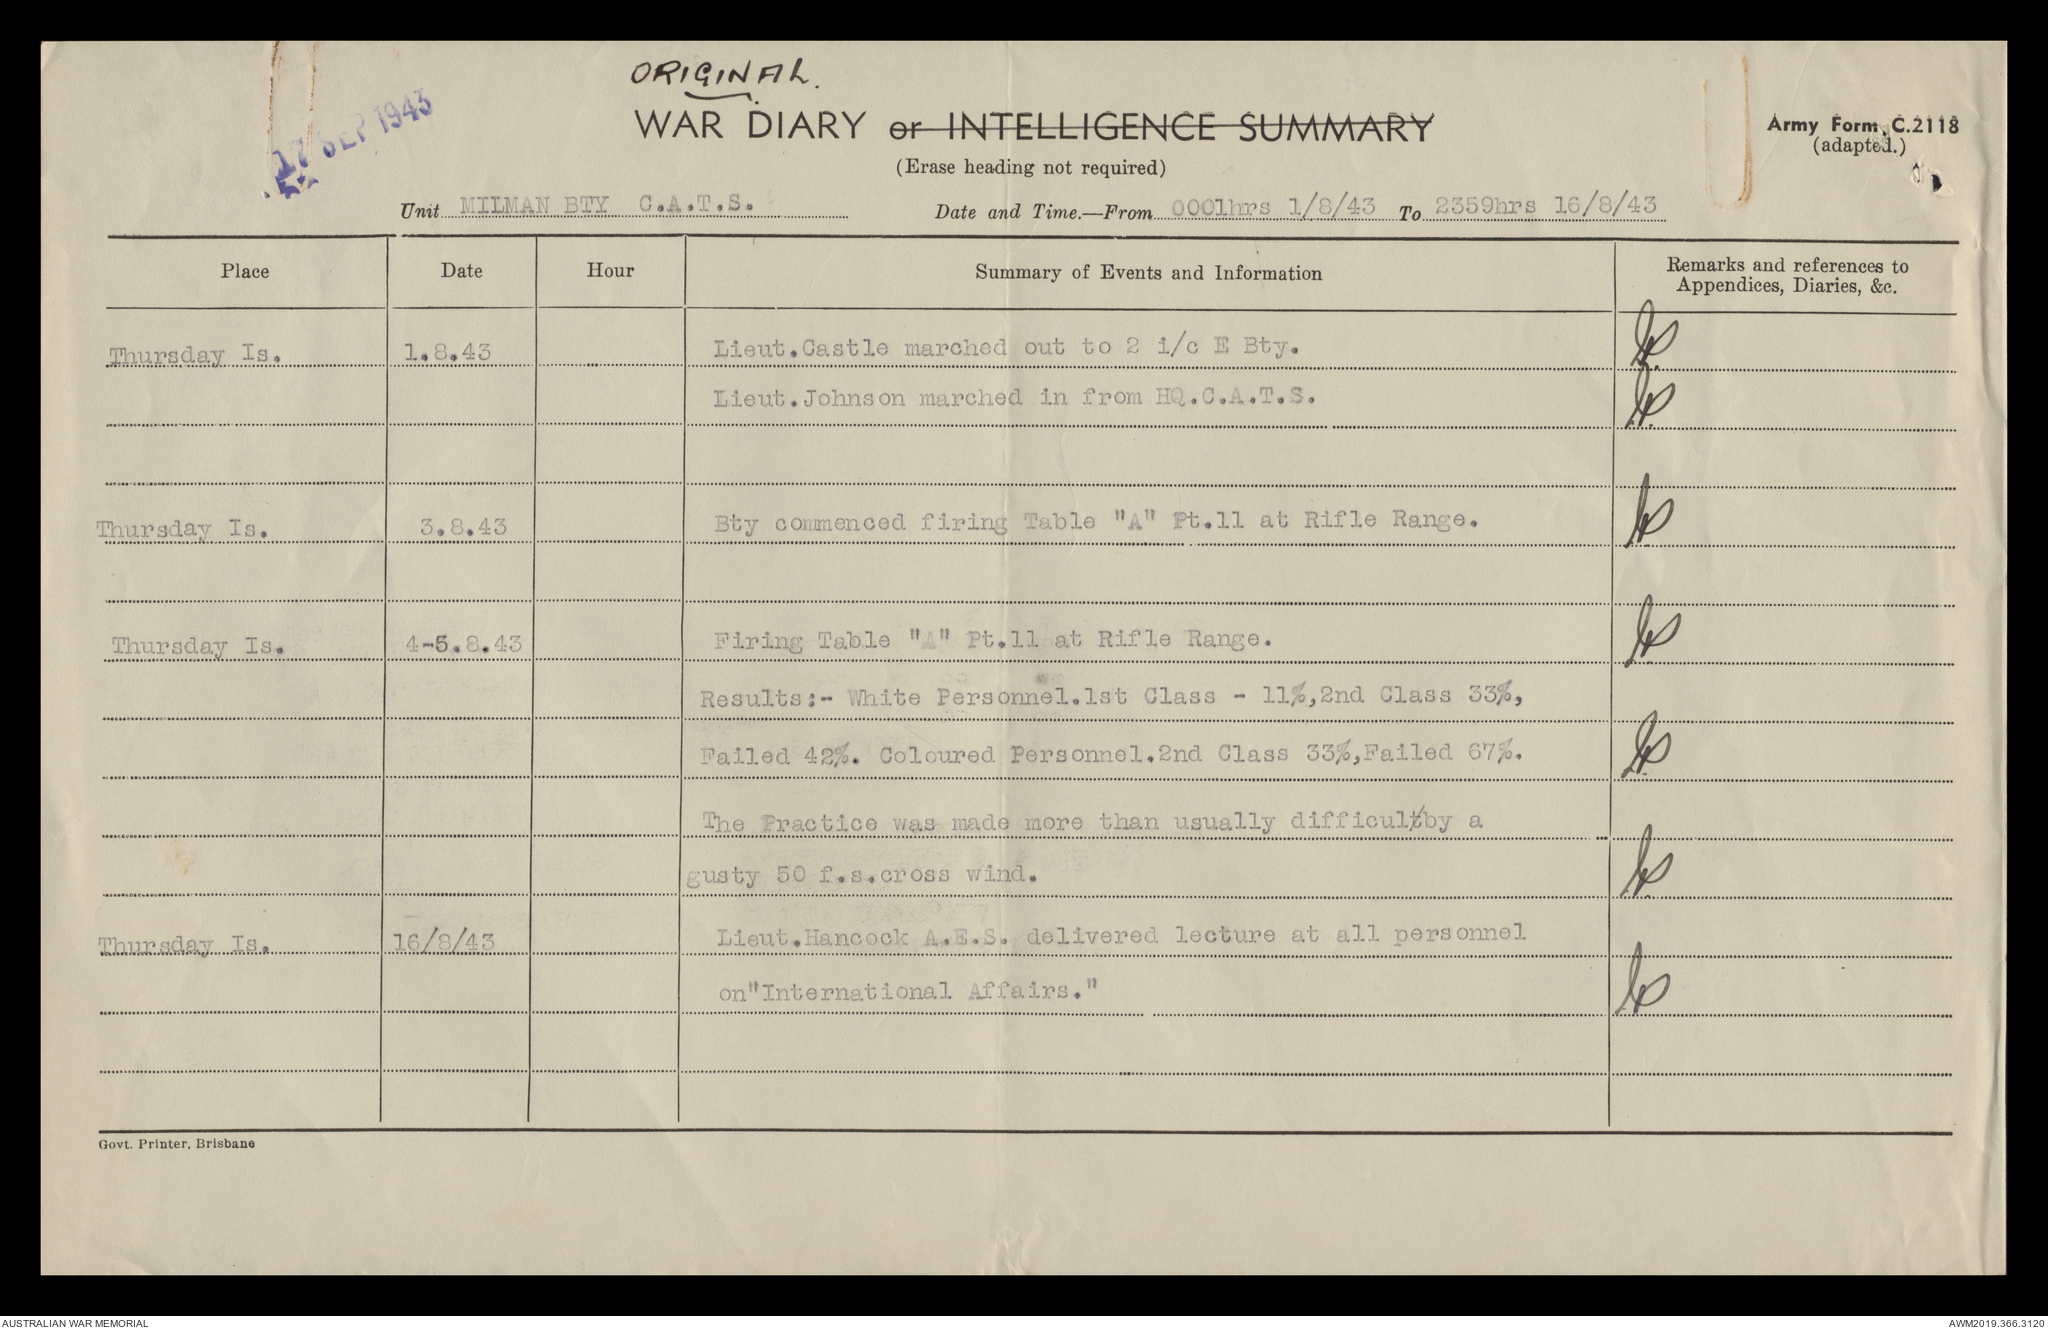 ORIGINAL.
17 SEP 1943
WAR DIARY or INTELLIGENCE SUMMARY
(Erase heading not required)
Army Form C.2118
(adapted.)
Unit MILMAN BTY C.A.T.S. Date and Time.—From 0001hrs 1/8/43 To 2359hrs 16/8/43
Place Date Hour Summary of Events and Information Remarks and references to
Appendices, Diaries, &c.
Thursday Is. 1.8.43 Lieut.Castle marched out to 2 i/c E Bty.
Lieut.Johnson marched in from HQ.C.A.T.S.
Thursday Is. 3.8.43 Bty commenced firing Table "A" Pt.11 at Rifle Range.
Thursday Is. 4-5.8.43 Firing Table "A" Pt.11 at Rifle Range.
Results:- White Personnel.1st Class - 11%,2nd Class 33%,
Failed 42%. Coloured Personnel.2nd Class 33%,Failed 67%.
The Practice was made more than usually difficult/by a
gusty 50 f.s.cross wind.
Thursday Is. 16/8/43 Lieut.Hancock A.E.S. delivered lecture at all personnel
on"International Affairs."
Govt. Printer, Brisbane
AUSTRALIAN WAR MEMORIAL AWM2019.366.3120